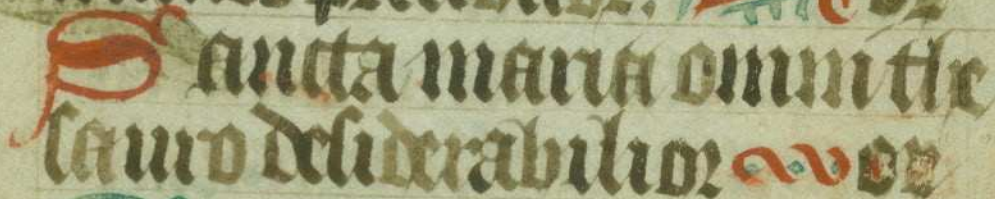 Sancta maria omni the
sauro desiderabilior or